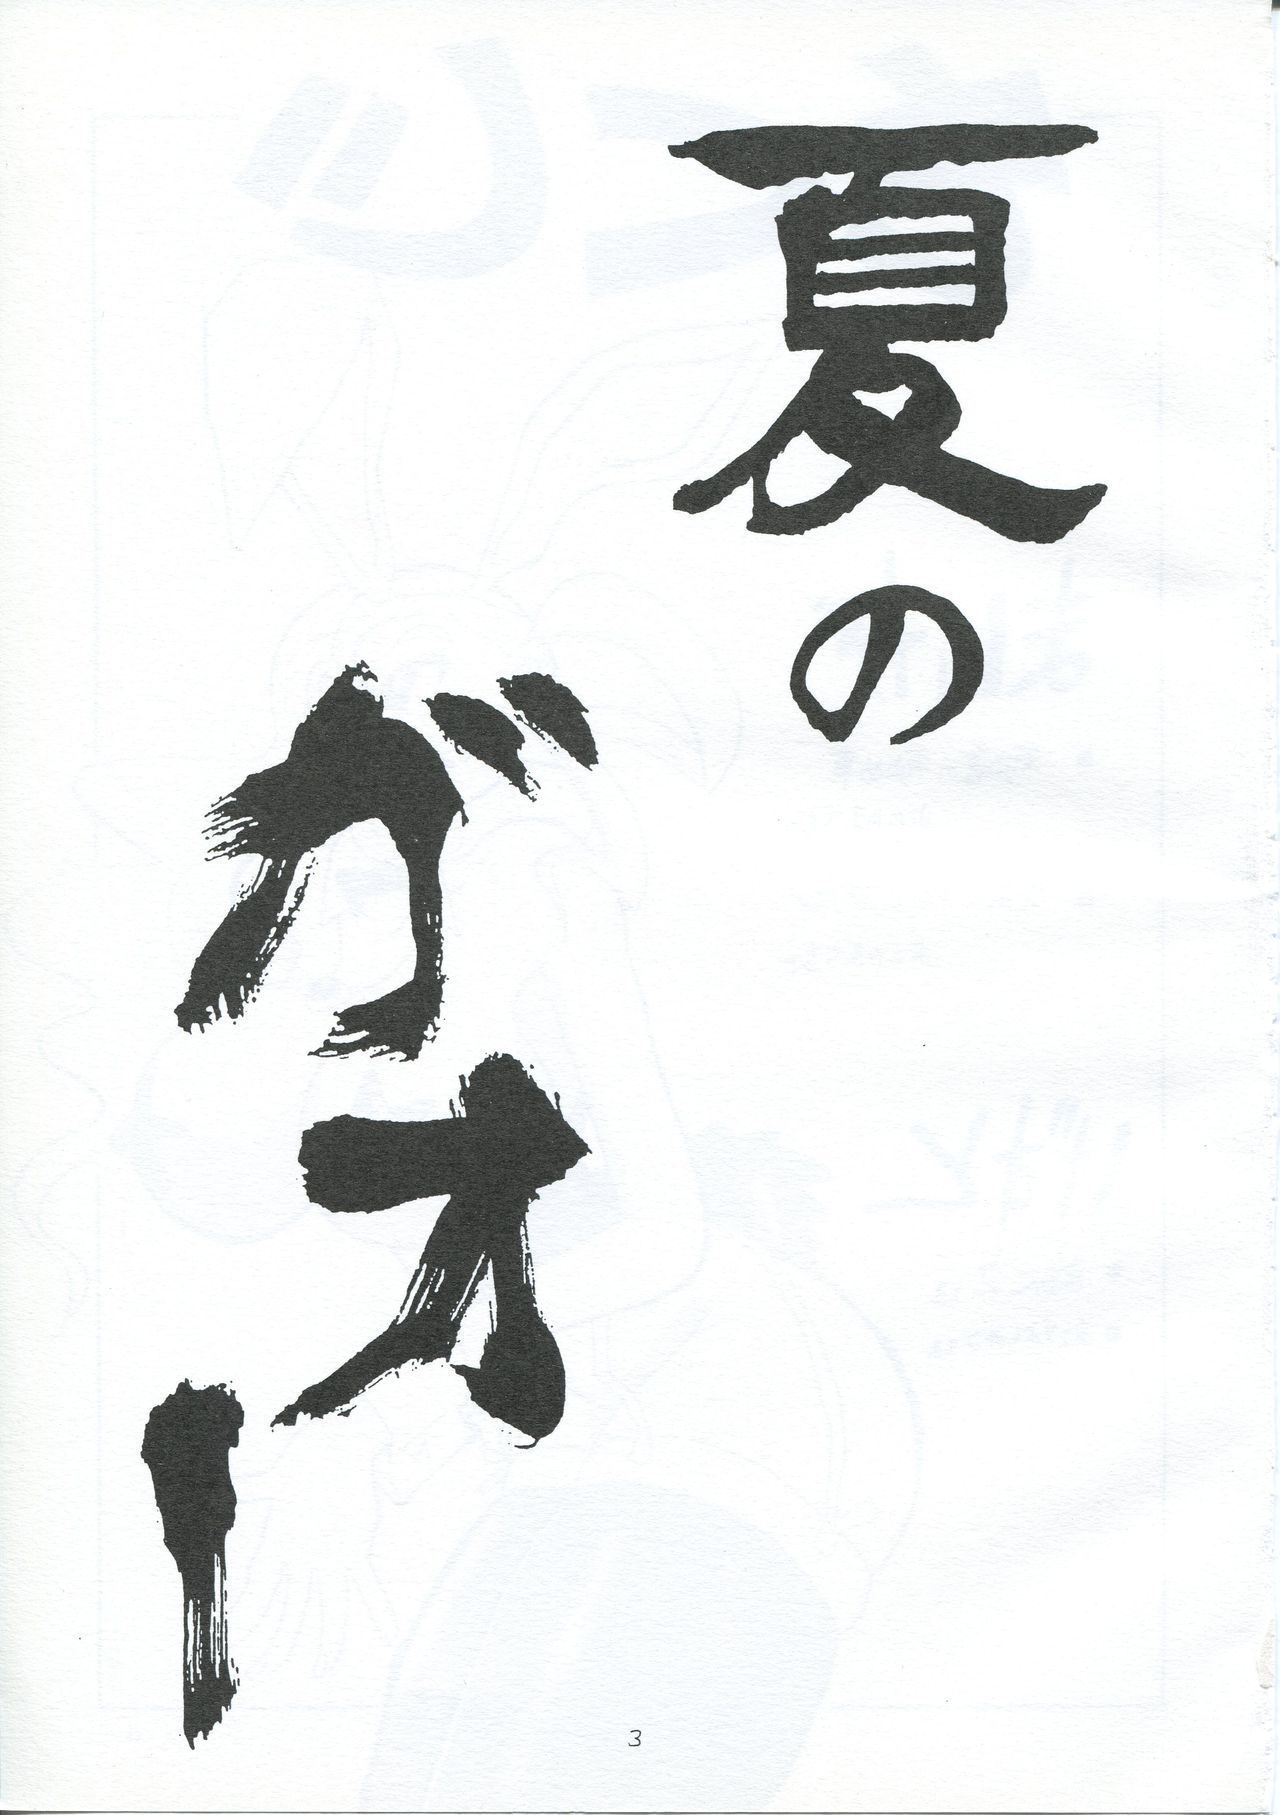 夏の
ガスー
3